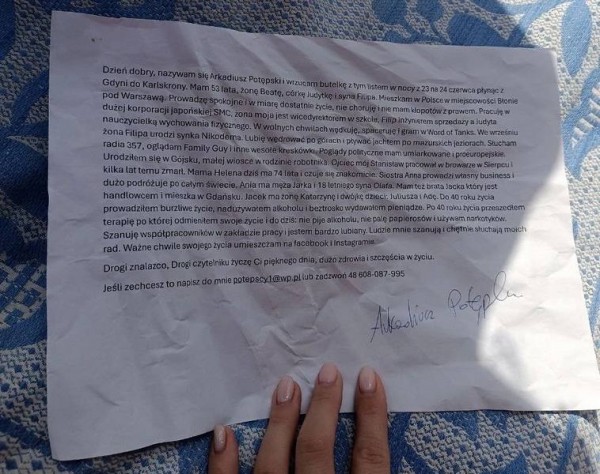 Dzień dobry, nazywam się Arkadiusz Potępski i wrzucam butelkę z tym listem w nocy z 23 na 24 czerwca płynąc z
Gdyni do Karlskrony. Mam 53 lata, żonę Beatę, córkę Judytkę i syna Filipa. Mieszkam w Polsce w miejscowości Słonie
pod Warszawą. Prowadzę spokojne i w miarę dostatnie życie, nie choruję i nie mam kłopotów z prawem. Pracuję w
dużej korporacji japońskiej SMC, żona moja jest wicedyrektorem w szkole, Filip inżynierem sprzedaży a Judyta
nauczycielką wychowania fizycznego. W wolnych chwilach wędkuję, spaceruję i gram w Word of Tanks. We wrześniu
żona Filipa urodzi synka Nikodema. Lubię wędrować po górach i pływać jachtem po mazurskich jeziorach. Słucham
radia 357, oglądam Family Guy i inne wesołe kreskówki. Poglądy polityczne mam umiarkowane i proeuropejskie.
Urodziłem się w Gójsku, małej wiosce w rodzinie robotnika. Ojciec mój Stanisław pracował w browarze w Sierpcu i
kilka lat temu zmarł. Mama Helena dziś ma 74 lata i czuje się znakomicie. Siostra Anna prowadzi własny business i
dużo podróżuje po całym świecie. Ania ma męża Jarka i 18 letniego syna Olafa. Mam też brata Jacka który jest
handlowcem i mieszka w Gdańsku. Jacek ma żonę Katarzynę i dwójkę dzieci: Juliusza i Adę. Do 40 roku życia
prowadziłem burzliwe życie, nadużywałem alkoholu i beztrosko wydawałem pieniądze. Po 40 roku życia przeszedłem
terapię po której odmieniłem swoje życie i do dziś: nie piję alkoholu, nie palę papierosów i używam narkotyków.
Szanuję współpracowników w zakładzie pracy i jestem bardzo lubiany. Ludzie mnie szanują i chętnie słuchają moich
rad. Ważne chwile swojego życia umieszczam na facebook i Instagramie.
Drogi znalazco, Drogi czytelniku życzę Ci pięknego dnia, dużo zdrowia i szczęścia w życiu.
Jeśli zechcesz to napisz do mnie potepscy1@wp.pl lub zadzwoń 48 608-087-995
Arkadiusz Potępski